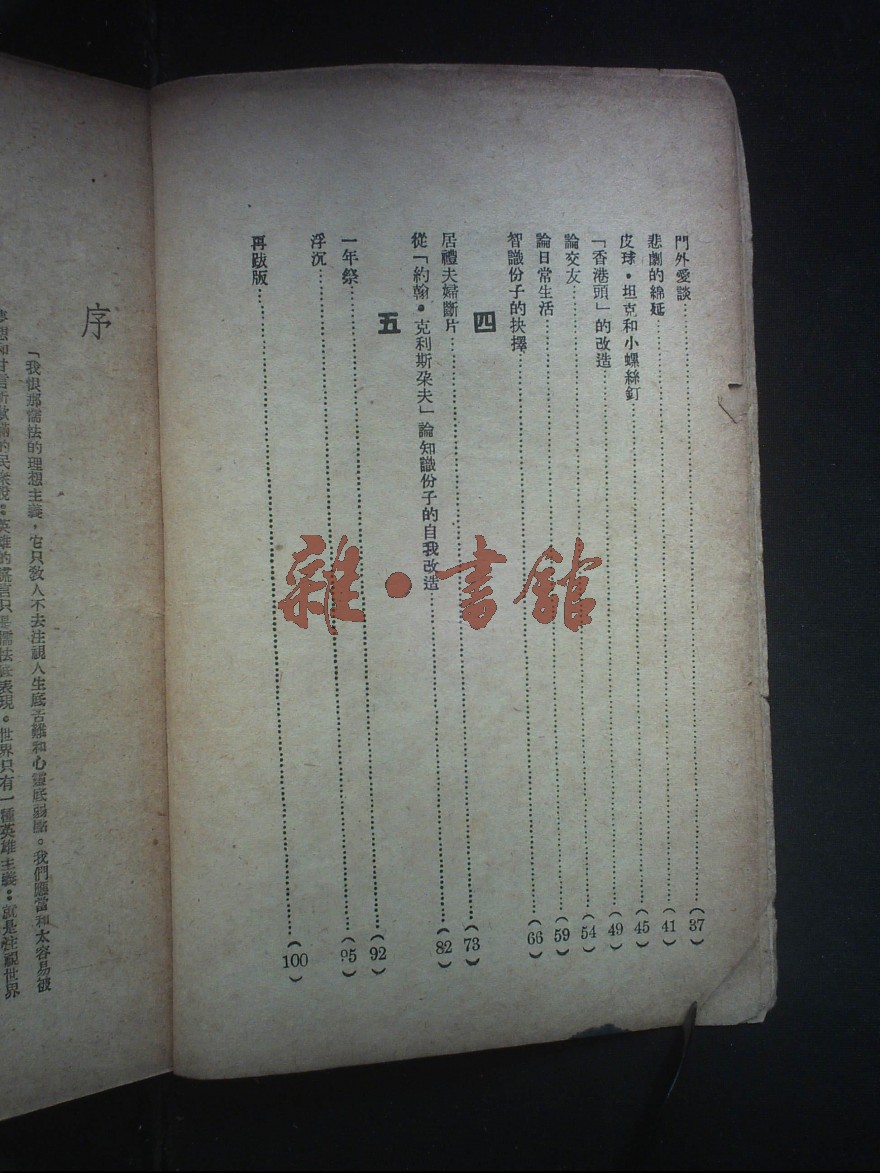 門外愛談……(37)
悲劇的綿延……(41)
皮球・坦克和小螺絲釘……(45)
「香港頭」的改造……(49)
論交友……(54)
論日常生活……(59)
智識份子的抉擇……(66)
四
居禮夫婦斷片……(73)
從「約翰・克利斯朶夫」論知識份子的自我改造……(82)
五
一年祭……(92)
浮沉……(95)
再跋版……(100)
雜・書館
序
「我恨那懦怯的理想主義，它只敎人不去注視人生底苦難和心靈底弱點。我們應當和太容易被
夢想和甘言所欺騙的民衆說：英雄的謊言只是懦怯底表現。世界只有一種英雄主義：就是注視世界